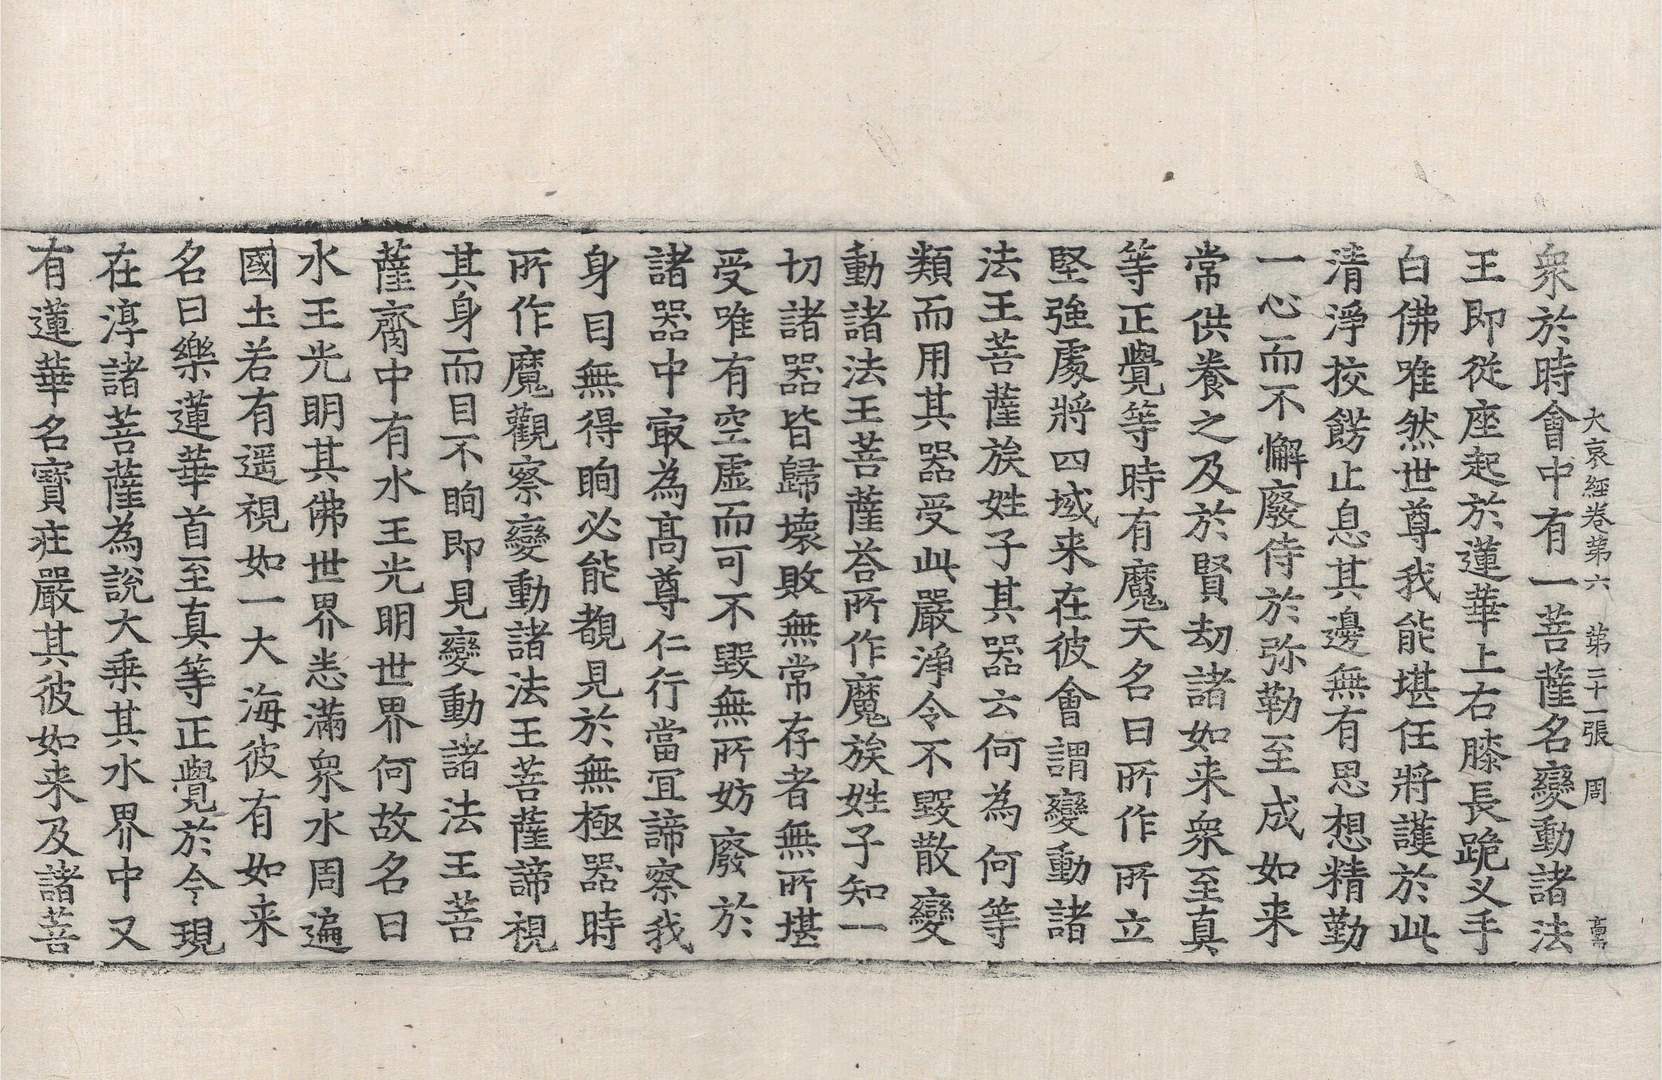 大哀經卷第六 第二十一張 周
衆於時會中有一菩薩名變動諸法
王即從座起於蓮華上右膝長跪叉手
白佛唯然世尊我能堪任將護於此
清淨挍餝止息其邊無有思想精勤
一心而不懈廢侍於弥勒至成如来
常供養之及於賢劫諸如来衆至真
等正覺等時有魔天名曰所作所立
堅強處將四域来在彼會謂變動諸
法王菩薩族姓子其器云何為何等
類而用其器受此嚴淨令不毀散變
動諸法王菩薩荅所作魔族姓子知一
切諸器皆歸壞敗無常存者無所堪
受唯有空虛而可不毀無所妨廢於
諸器中㝡為高尊仁行當宜諦察我
身目無得眴必能覩見於無極器時
所作魔觀察變動諸法王菩薩諦視
其身而目不眴即見變動諸法王菩
薩齊中有水王光明世界何故名曰
水王光明其佛世界悉滿衆水周遍
國土若有遥視如一大海彼有如来
名曰樂蓮華首至真等正覺於今現
在淳諸菩薩為說大乘其水界中又
有蓮華名寶莊嚴其彼如来及諸菩